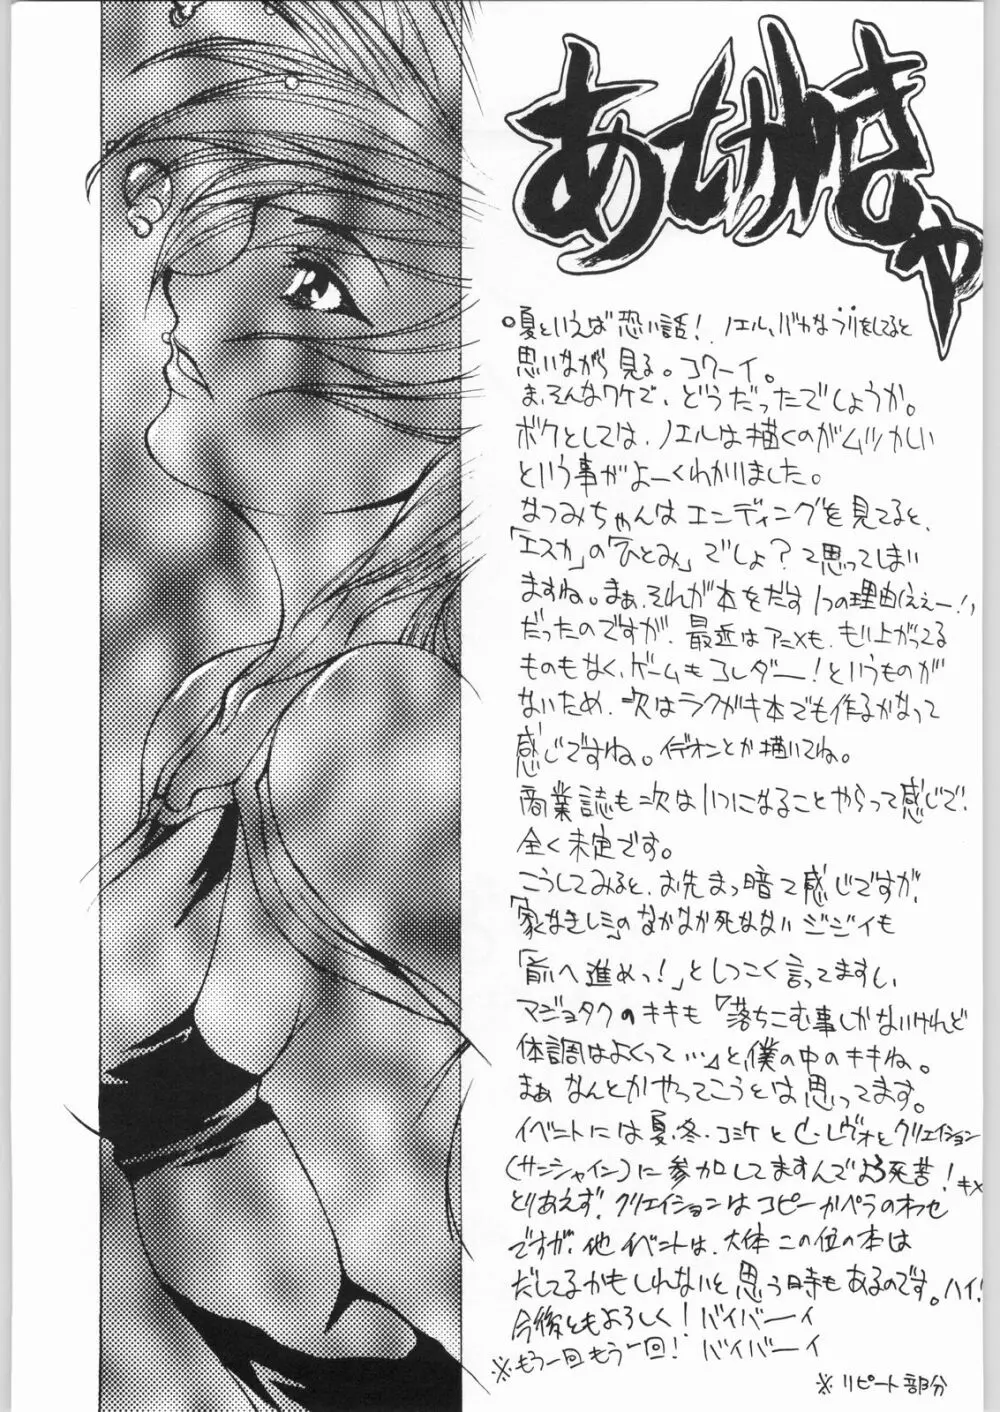 あとがきゃ
。夏といえば恐い話! ノエル、バカなフリをしてると
思いながら見る。コワーイ。
ま、そんなワケで、どうだったでしょうか。
ボクとしては、ノエルは描くのがムツかしい
という事がよーくわかりました。
なつみちゃんはエンディングを見てると、
「エスカ」の「ひとみ」でしょ?て思ってしまい
ますね。まぁ、それが本をだす1つの理由(ええー!)
だったのですが、最近はアニメも、もり上がってる
ものもなく、ゲームもコレダー!というものが
ないため、次はラクガキ本でも作るかなって
感じですね。イデオンとか描いてね。
商業誌も次はいつになることやらって感じで、
全く未定です。
こうしてみると、お先まっ暗て感じですが、
「家なきレミ」のなかなか死なないジジイも
「前へ進めっ!」としつこく言ってますし
マジョタクのキキも「落ちこむ事しかないけれど
体調はよくって…」と、僕の中のキキね。
まぁなんとかやってこうとは思ってます。
イベントには夏・冬・コミケとC・レヴォとクリエイション
(サンシャイン)に参加してますんでよろ死苦!キメ
とりあえず、クリエイションはコピーかペラのわせ
ですが、他イベントは、大体この位の本は
だしてるかもしれないと思う時もあるのです。ハイ!
今後ともよろしく! バイバーイ
※もう一回もう一回! バイバーイ
※リピート部分